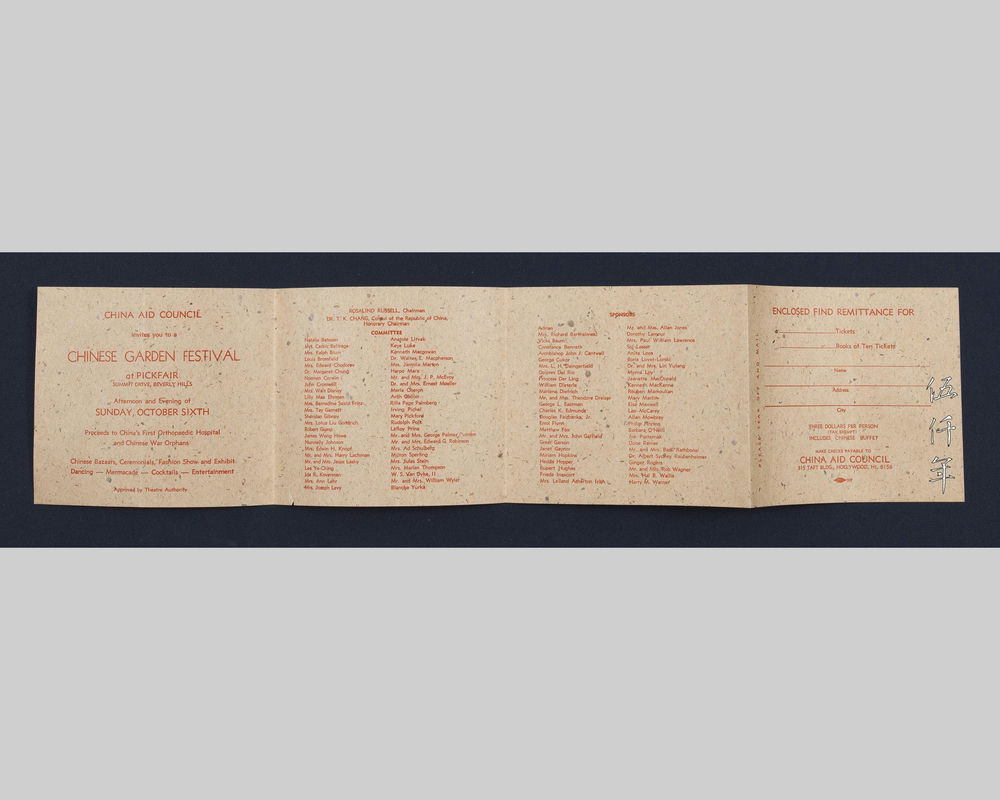 CHINA AID COUNCIL
invites you to a
CHINESE GARDEN FESTIVAL
at PICKFAIR
SUMMIT DRIVE, BEVERLY HILLS
Afternoon and Evening of
SUNDAY, OCTOBER SIXTH
Proceeds to China's First Orthopaedic Hospital
and Chinese War Orphans
Chinese Bazaars, Ceremonials, Fashion Show and Exhibit
Dancing — Marmacade — Cocktails — Entertainment
Approved by Theatre Authority
ROSALIND RUSSELL, Chairman
DR. T. K. CHANG, Consul of the Republic of China,
Honorary Chairman
COMMITTEE
Natalie Benson
Mrs. Cedric Belfrage
Mrs. Ralph Blum
Louis Bromfield
Mrs. Edward Chodorov
Dr. Margaret Chung
Norman Corwin
John Cromwell
Mrs. Walt Disney
Lilly May Ehrman
Mrs. Bernadine Szold Fritz
Mrs. Tay Garnett
Sheridan Gibney
Mrs. Lotus Liu Goodrich
Robert Gump
James Wong Howe
Nunnally Johnson
Mrs. Edwin H. Knopf
Mr. and Mrs. Harry Lachman
Mr. and Mrs. Jesse Lasky
Lee Ya-Ching
Ida R. Koverman
Mrs. Ann Lehr
Mrs. Joseph Levy
Anatole Litvak
Keye Luke
Kenneth Macgowan
Dr. Walter E. Macpherson
Mrs. Jamelia Marton
Harpo Marx
Mr. and Mrs. J. P. McEvoy
Dr. and Mrs. Ernest Moeller
Merle Oberon
Arch Oboler
Rilla Page Palmborg
Irving Pichel
Mary Pickford
Rudolph Polk
LeRoy Prinz
Mr. and Mrs. George Palmer Putnam
Mr. and Mrs. Edward G. Robinson
Mrs. Ad Schulberg
Milton Sperling
Mrs. Jules Stein
Mrs. Marian Thompson
W. S. Van Dyke, II
Mr. and Mrs. William Wyler
Blanche Yurka
SPONSORS
Adrian
Mrs. Richard Barthelmess
Vicki Baum
Constance Bennett
Archbishop John J. Cantwell
George Cukor
Mrs. L. H. Daingerfield
Dolores Del Rio
Princess Der Ling
William Dieterle
Marlene Dietrich
Mr. and Mrs. Theodore Dreiser
George L. Eastman
Charles K. Edmunds
Douglas Fairbanks, Jr.
Errol Flynn
Matthew Fox
Mr. and Mrs. John Garfield
Greer Garson
Janet Gaynor
Miriam Hopkins
Hedda Hopper
Rupert Hughes
Frieda Inescort
Mrs. Leiland Atherton Irish
Mr. and Mrs. Allan Jones
Dorothy Lamour
Mrs. Paul William Lawrence
Sol Lesser
Anita Loos
Boris Lovet-Lorski
Dr. and Mrs. Lin Yutang
Myrna Loy
Jeanette MacDonald
Kenneth MacKenna
Rouben Mamoulian
Mary Martin
Elsa Maxwell
Leo McCarey
Allan Mowbray
Barbara O'Neill
Joe Pasternak
Luise Rainer
Mr. and Mrs. Basil Rathbone
Dr. Albert Sydney Raubenheimer
Ginger Rogers
Mr. and Mrs. Rob Wagner
Mrs. Hal B. Wallis
Harry M. Warner
PLEASE TEAR OFF AND MAIL
ENCLOSED FIND REMITTANCE FOR
Tickets
Books of Ten Tickets
Name
Address
City
THREE DOLLARS PER PERSON
(TAX EXEMPT)
INCLUDES CHINESE BUFFET
MAKE CHECKS PAYABLE TO
CHINA AID COUNCIL
515 TAFT BLDG., HOLLYWOOD, HI. 8156
伍仟年